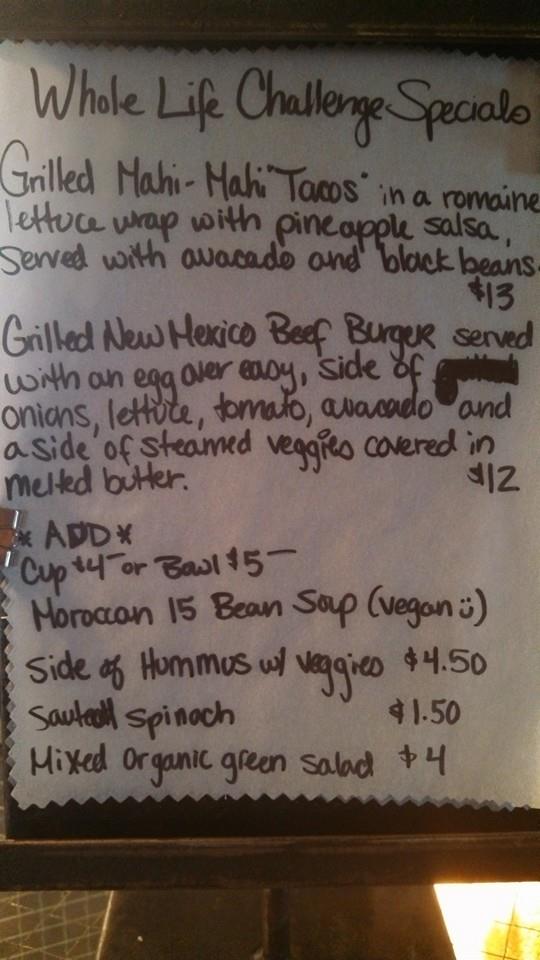 Whole Life Challenge Specials
Grilled Mahi-Mahi "Tacos" in a romaine
lettuce wrap with pineapple salsa,
served with avacado and black beans.
$13
Grilled New Mexico Beef Burger served
with an egg over easy, side of
onions, lettuce, tomato, avacado and
a side of steamed veggies covered in
melted butter. $12
* ADD *
Cup $4 or Bowl $5
Moroccan 15 Bean Soup (vegan ü)
Side of Hummus w/ veggies $4.50
spinach $1.50
Mixed Organic green salad $4